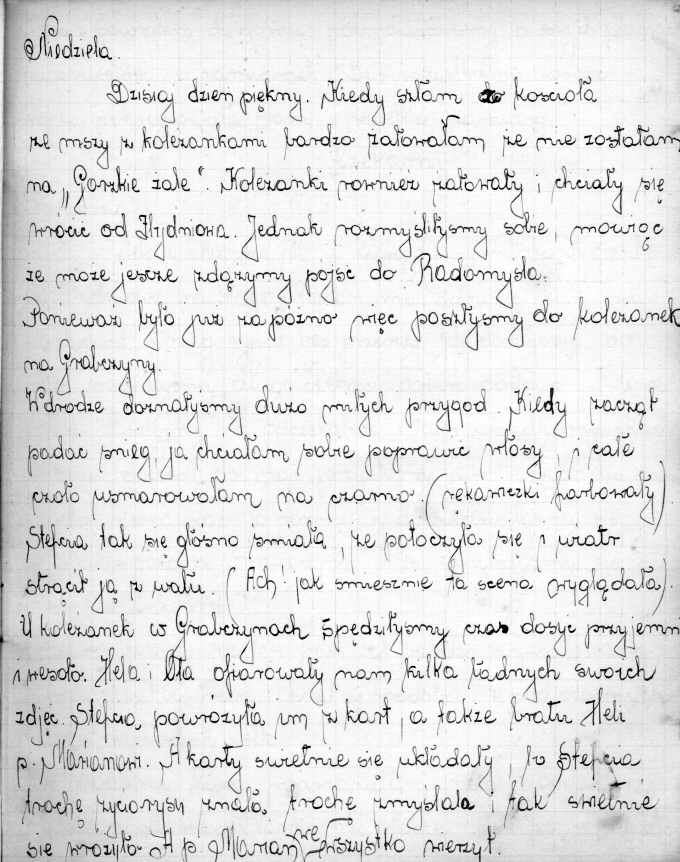 Niedziela.
Dzisiaj dzień piękny. Kiedy szłam do kościoła
ze mszy z koleżankami bardzo żałowałam że nie zostałam
na „Gorzkie żale". Koleżanki również żałowały i chciały się
wrócić od Hydniowa. Jednak rozmyśliłyśmy sobie, mówiąc
że może jeszcze zdążymy pójść do Radomyśla.
Ponieważ było już zapóźno więc poszłyśmy do koleżanek
na Grabczyny.
W drodze doznałyśmy dużo miłych przygod. Kiedy zaczął
padać śnieg, ja chciałam sobie poprawić włosy, i całe
czoło usmarowałam na czarno. (rękawiczki farbowały)
Stefcia tak się głośno śmiała, że potoczyła się i wiatr
strącił ją z wału. (Ach! jak śmiesznie ta scena wyglądała).
U koleżanek w Grabczynach spędziłyśmy czas dosyć przyjemn
i wesoło. Hela i Ola ofiarowały nam kilka ładnych swoich
zdjęc. Stefcia, powróżyła im z kart, a także bratu Heli
p. Marianowi. A karty świetnie się układały, bo Stefcia
trochę życiorysu znała, trochę zmyślała i tak świetnie
się wróżyło. A p. Marian we wszystko wierzył.